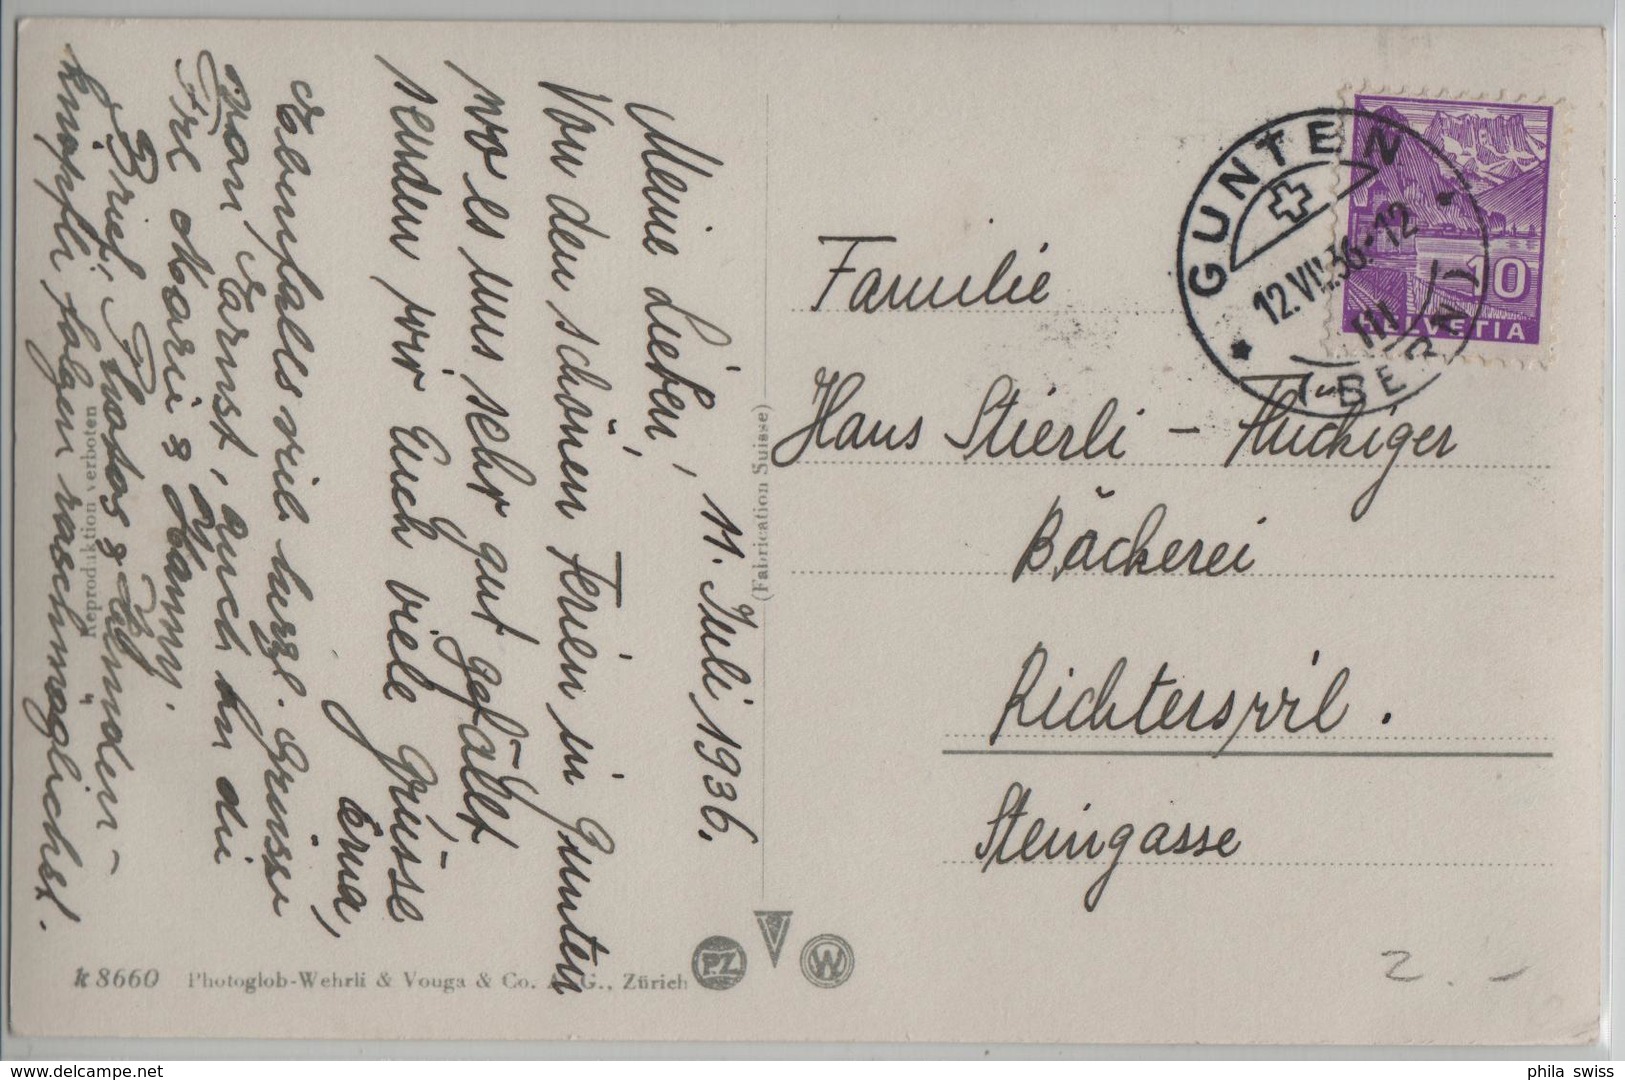 11. Juli 1936.
Meine Lieben,
Von den schönen Ferien in Gunten
wo es uns sehr gut gefällt
senden wir Euch viele Grüsse
Erna,
Ebenfalls viel herzl. Grüsse
von Ernst, auch an die
Frl Marie & Hanny.
Brief, Photos &
knöpfli folgen raschmöglichst.
(Fabrication Suisse)
Reproduktion verboten
k 8660 Photoglob-Wehrli & Vouga & Co. A. G., Zürich
PZ V W
Familie
Hans Stierli - Fluckiger
Bäckerei
Richterswil.
Steingasse
GUNTEN
12.VII.36-12
III
(BERN)
10
HELVETIA
2. -
delcampe.net
phila swiss